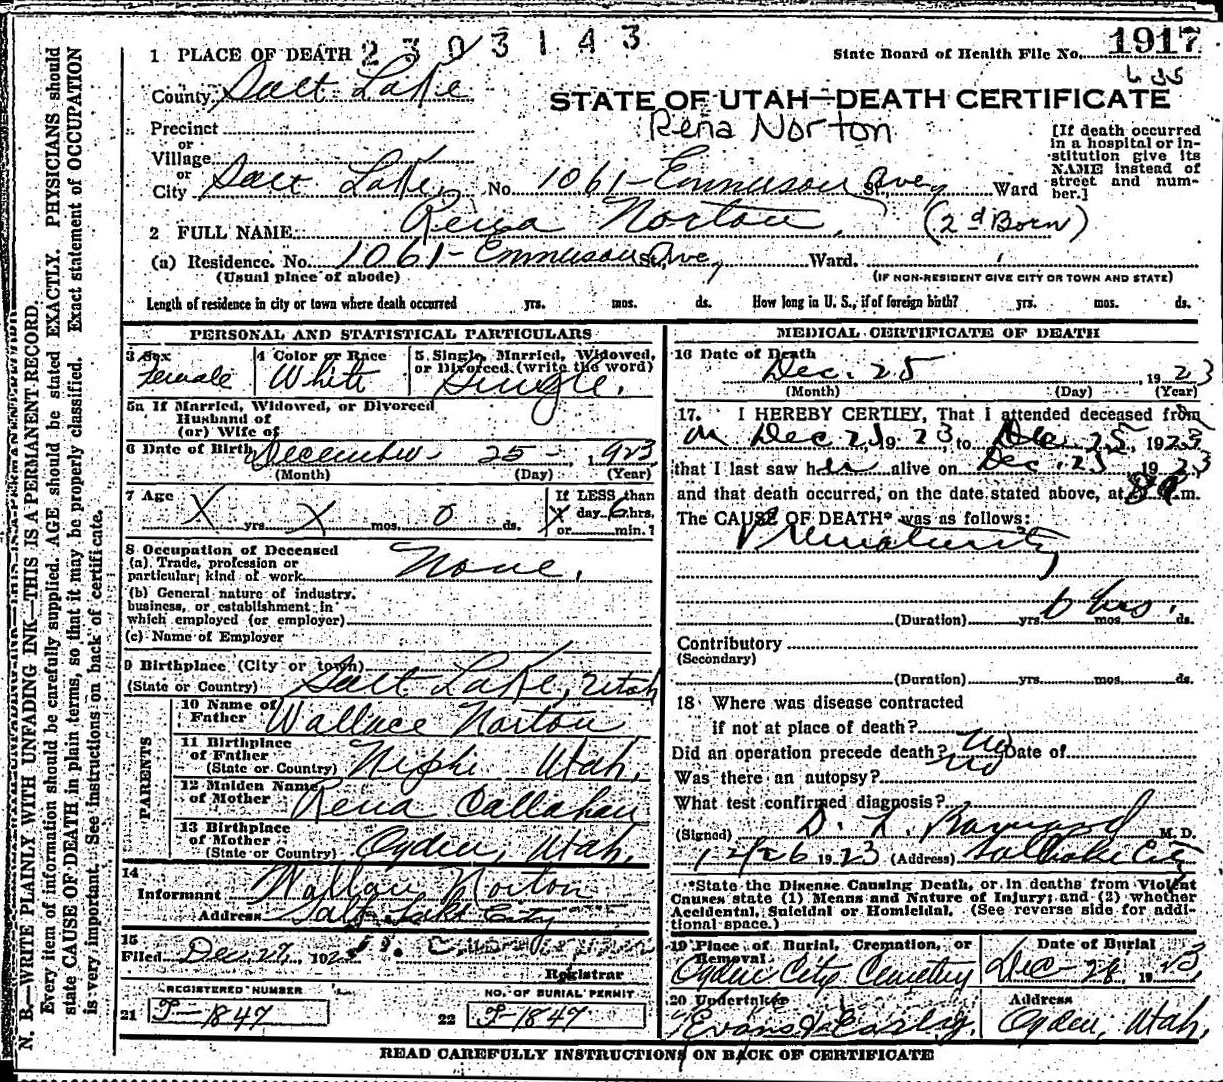 1 PLACE OF DEATH 2303143
State Board of Health File No. 1917
County Salt Lake
STATE OF UTAH—DEATH CERTIFICATE
Precinct
Rena Norton
or
Village
or
City Salt Lake, No. 1061- Emmerson St. Ave, Ward
[If death occurred
in a hospital or in-
stitution give its
NAME instead of
street and num-
ber.]
2 FULL NAME Rena Norton. (2d Born)
(a) Residence. No. 1061- Emmerson St. Ave, Ward.
(Usual place of abode) (IF NON-RESIDENT GIVE CITY OR TOWN AND STATE)
Length of residence in city or town where death occurred yrs. mos. ds. How long in U. S., if of foreign birth? yrs. mos. ds.
PERSONAL AND STATISTICAL PARTICULARS
3 Sex Female
4 Color or Race White
5 Single, Married, Widowed,
or Divorced (write the word)
Single.
5a If Married, Widowed, or Divorced
Husband of
(or) Wife of
6 Date of Birth December 25- 1923
(Month) (Day) (Year)
7 Age X yrs. X mos. 0 ds.
If LESS than
1 day 6 hrs.
or min.?
8 Occupation of Deceased
(a) Trade, profession or
particular kind of work None.
(b) General nature of industry,
business, or establishment in
which employed (or employer)
(c) Name of Employer
9 Birthplace (City or town)
(State or Country) Salt Lake, Utah
PARENTS
10 Name of
Father Wallace Norton
11 Birthplace
of Father
(State or Country) Nephi Utah.
12 Maiden Name
of Mother Rena Callahan
13 Birthplace
of Mother
(State or Country) Ogden, Utah.
14
Informant Wallace Norton
Address Salt Lake City
15
Filed Dec 27, 192
Registrar
REGISTERED NUMBER
21 J-1847
NO. OF BURIAL PERMIT
22 J-1847
MEDICAL CERTIFICATE OF DEATH
16 Date of Death
Dec. 25, 1923
(Month) (Day) (Year)
17. I HEREBY CERTIFY, That I attended deceased from
on Dec 21 1923 to Dec. 25, 1923,
that I last saw her alive on Dec. 23 1923
and that death occurred, on the date stated above, at m.
The CAUSE OF DEATH* was as follows:
Prematurity
6 hrs.
(Duration) yrs. mos. ds.
Contributory
(Secondary)
(Duration) yrs. mos. ds.
18 Where was disease contracted
if not at place of death?
Did an operation precede death? no Date of
Was there an autopsy? no
What test confirmed diagnosis?
(Signed) D. L. M. D.
12/26 1923 (Address) Salt Lake City
*State the Disease Causing Death, or in deaths from Violent
Causes state (1) Means and Nature of Injury; and (2) whether
Accidental, Suicidal or Homicidal. (See reverse side for addi-
tional space.)
19 Place of Burial, Cremation, or
Removal
Ogden City Cemetery
Date of Burial
Dec- 26 1923,
20 Undertaker
Address
Ogden, Utah,
READ CAREFULLY INSTRUCTIONS ON BACK OF CERTIFICATE
N. B.—WRITE PLAINLY WITH UNFADING INK—THIS IS A PERMANENT RECORD.
Every item of information should be carefully supplied. AGE should be stated EXACTLY. PHYSICIANS should
state CAUSE OF DEATH in plain terms, so that it may be properly classified. Exact statement of OCCUPATION
is very important. See instructions on back of certificate.